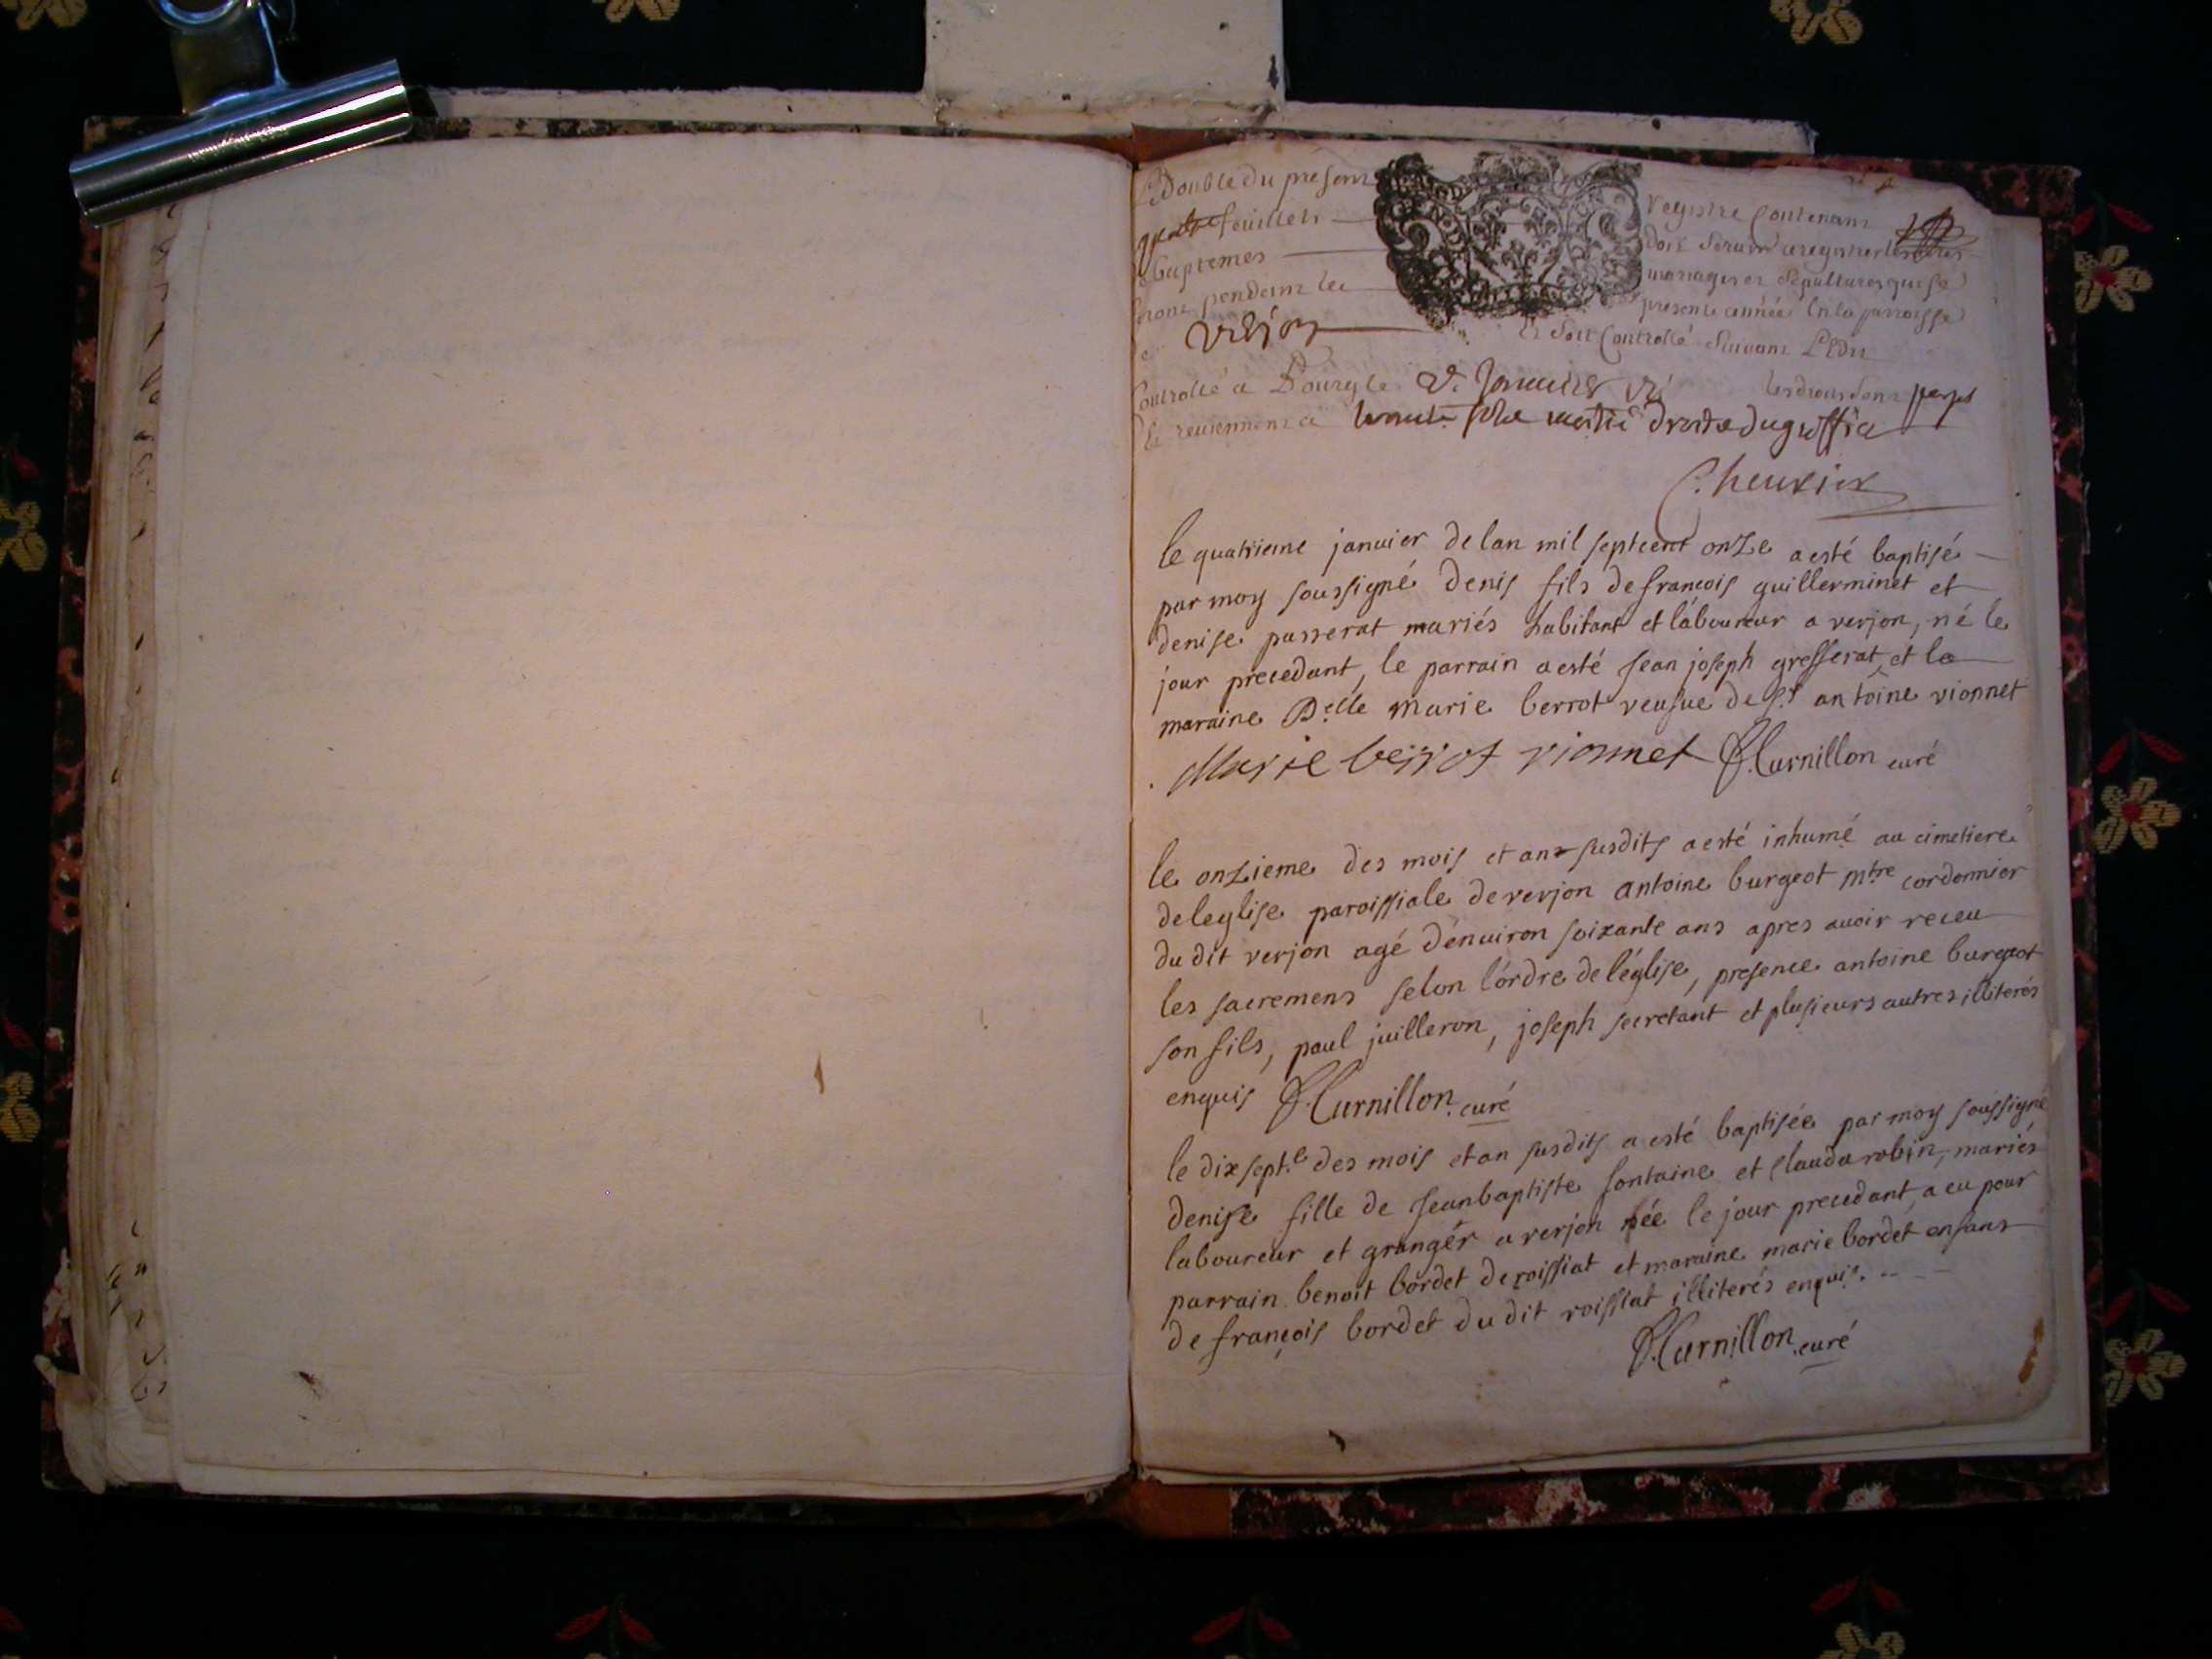 Double du present registre Contenant
quatre feuillets doit servir a registrer les
baptemes mariages et sepultures qui se
feront pendant la presente année En la parroisse
de verjon Et soit Controllé Suivant L'Edit
Controllé a Bourg le janvier les droits sont payés
Le revenant a droits du greffier
le quatrieme janvier de lan mil septcent onze a esté baptisé
par moy soussigné denis fils de francois guillerminet et
denise passerat mariés habitant et láboureur a verjon, né le
jour precedant, le parrain a esté jean joseph gresserat, et la
maraine Delle marie berrot veufue de Sr antoine vionnet
Marie berrot vionnet P. Curnillon curé
le onzieme des mois et an susdits a esté inhumé au cimetiere
de leglise paroissiale de verjon antoine burgeot mtre cordonnier
du dit verjon agé dénuiron soixante ans apres auoir receu
les sacremens selon lórdre de léglise, presence antoine burgeot
son fils, paul juilleron, joseph secretant et plusieurs autres illiterés
enquis P. Curnillon curé
le dix sept.e des mois et an susdits a esté baptisée par moy soussigné
denise fille de jeanbaptiste fontaine et clauda robin, mariés
laboureur et grangér a verjon née le jour precedant, a eu pour
parrain benoit bordet de roissiat et maraine marie bordet enfans
de françois bordet du dit roissiat illiterés enquis.
P. Curnillon curé